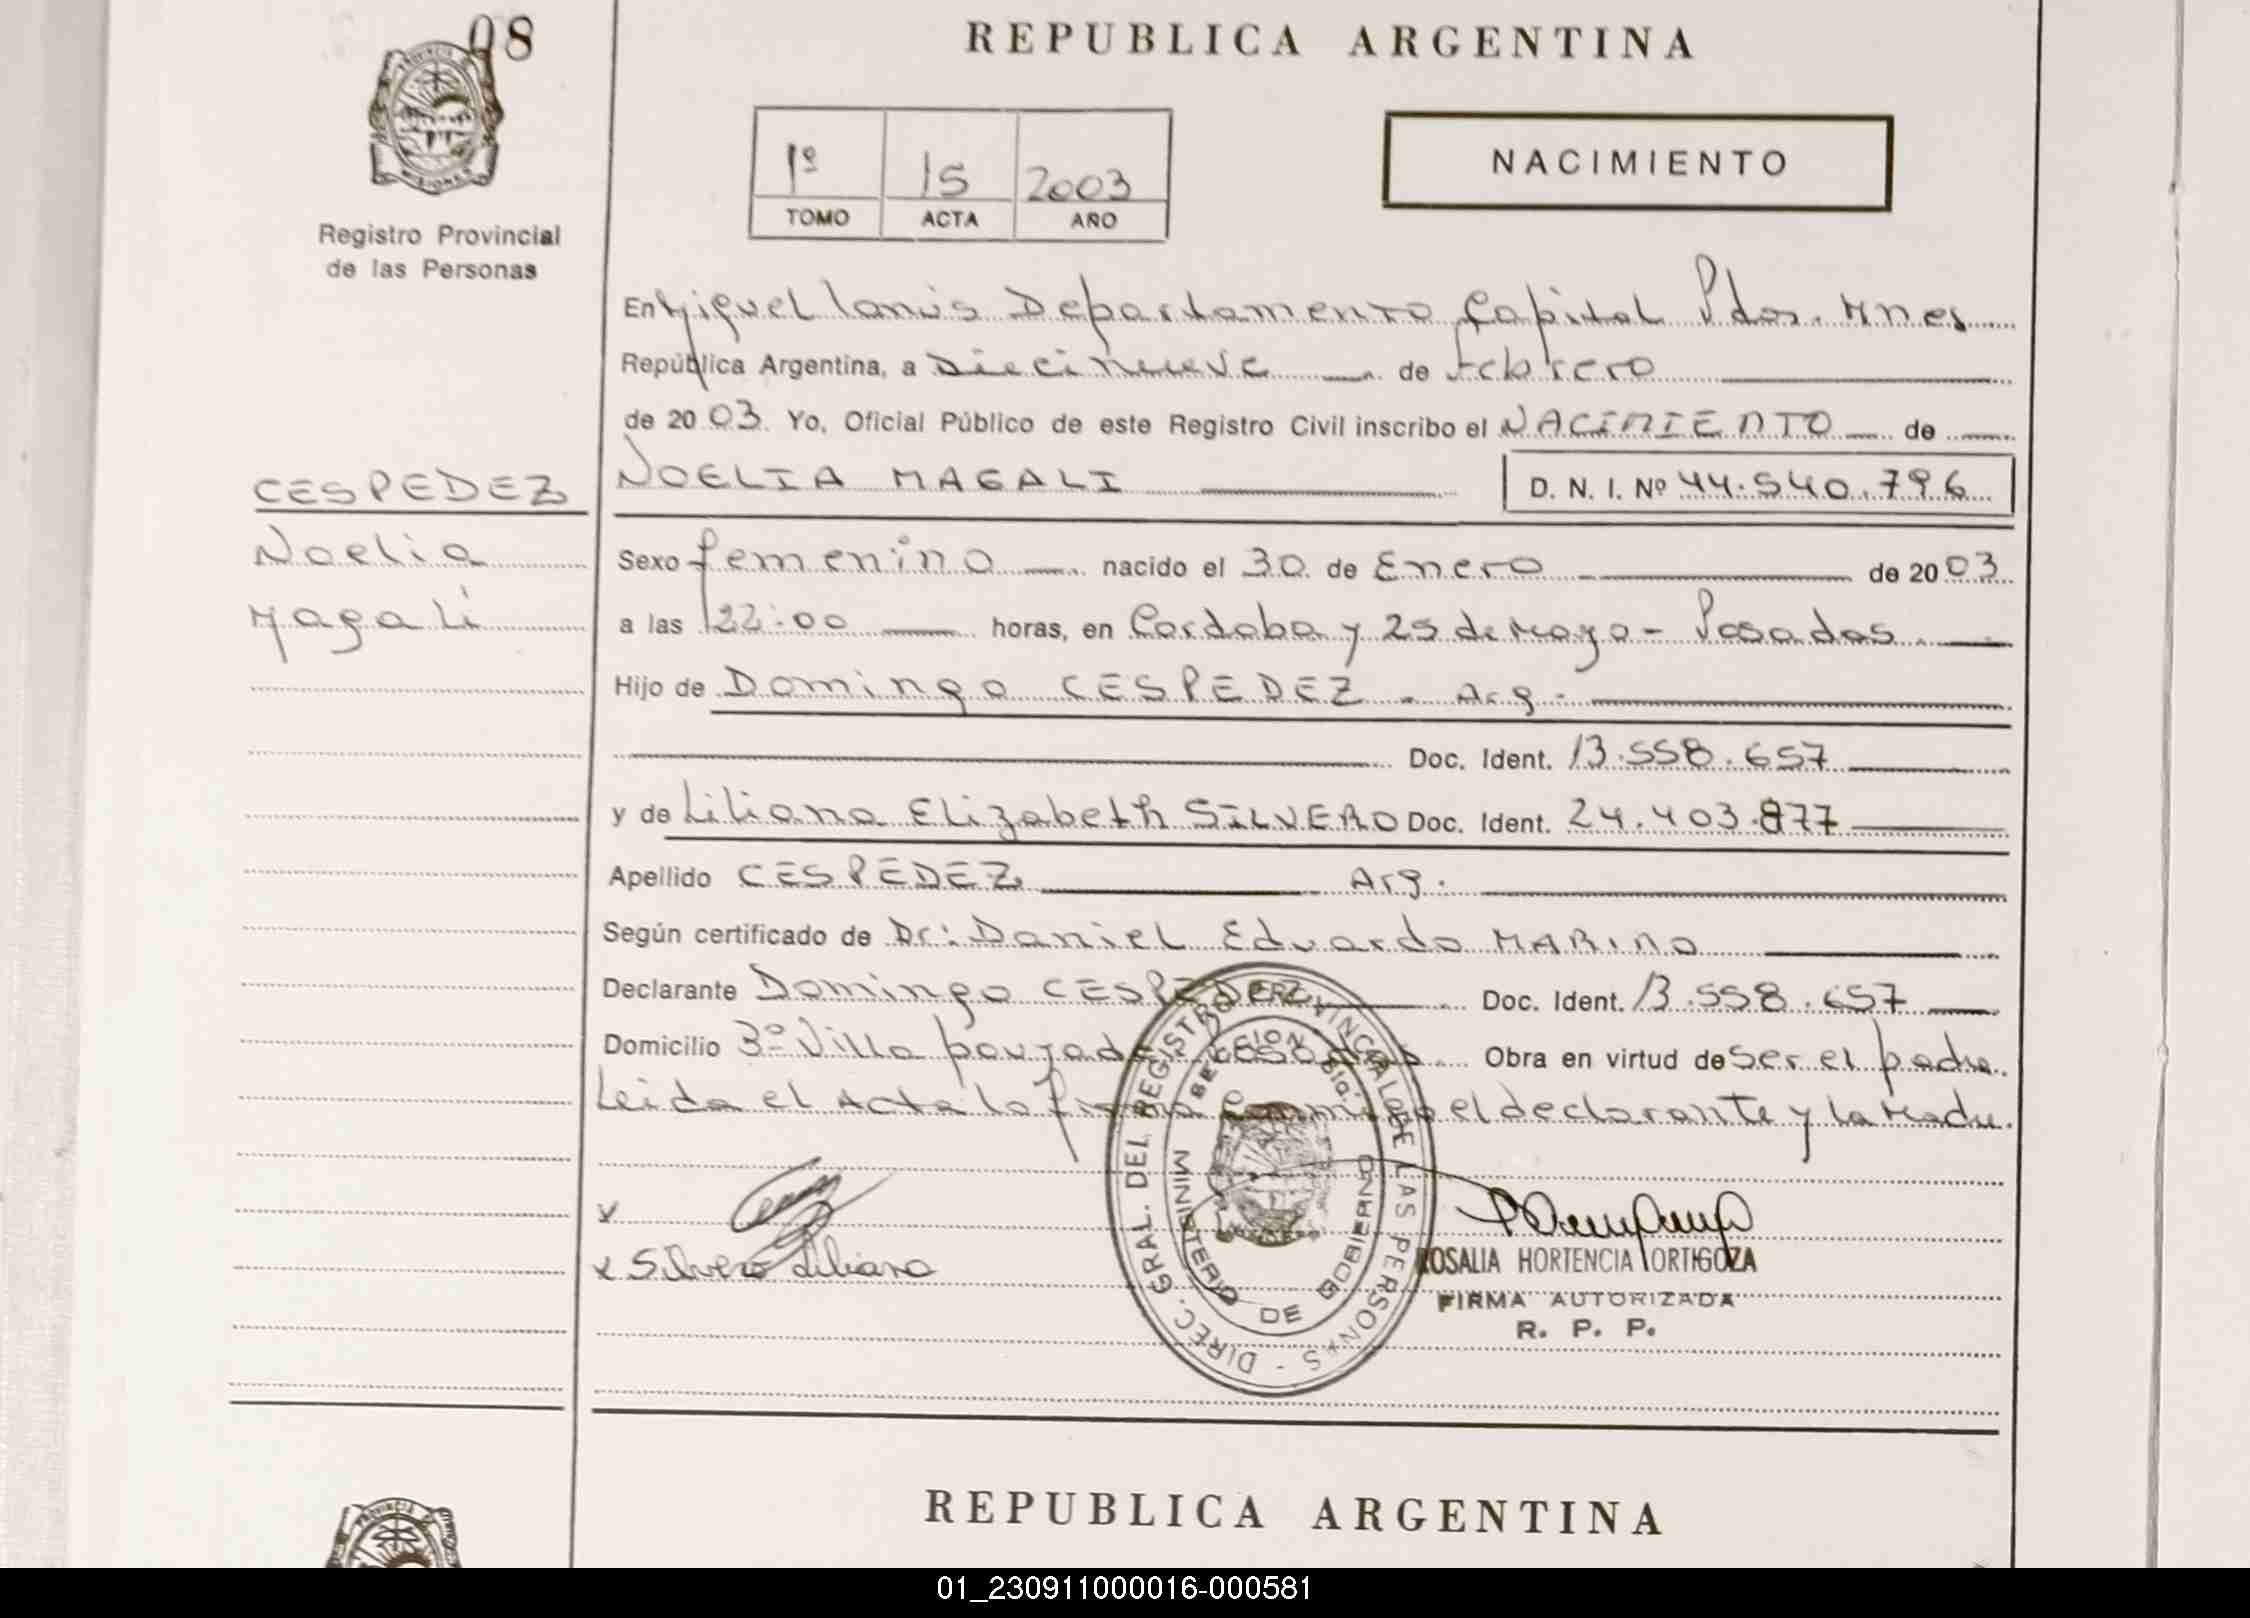 08
REPUBLICA ARGENTINA
PROVINCIA DE
MISIONES
Registro Provincial
de las Personas
1º 15 2003
TOMO ACTA AÑO
NACIMIENTO
En Miguel Lanús Departamento Capital Pdas. Mnes
República Argentina, a Diecinueve de Febrero
de 2003. Yo, Oficial Público de este Registro Civil inscribo el NACIMIENTO de
CESPEDEZ
Noelia
Magali
NOELIA MAGALI D. N. I. Nº 44.540.796
Sexo femenino nacido el 30 de Enero de 2003
a las 22:00 horas, en Cordoba y 25 de Mayo - Posadas.
Hijo de Domingo CESPEDEZ - Arg.-
Doc. Ident. 13.558.657
y de Liliana Elizabeth SILVERO Doc. Ident. 24.403.877
Apellido CESPEDEZ Arg.
Según certificado de Dr: Daniel Eduardo MARINO
Declarante Domingo CESPEDEZ Doc. Ident. 13.558.657
Domicilio 3º Villa Obra en virtud de ser el padre.
Leida el Acta la firma conmigo el declarante y la Madre.
x
x Silvero Liliana
DIREC. GRAL. DEL REGISTRO PROVINCIAL DE LAS PERSONAS -
MINISTERIO DE GOBIERNO
ROSALIA HORTENCIA ORTIGOZA
FIRMA AUTORIZADA
R. P. P.
REPUBLICA ARGENTINA
01_230911000016-000581